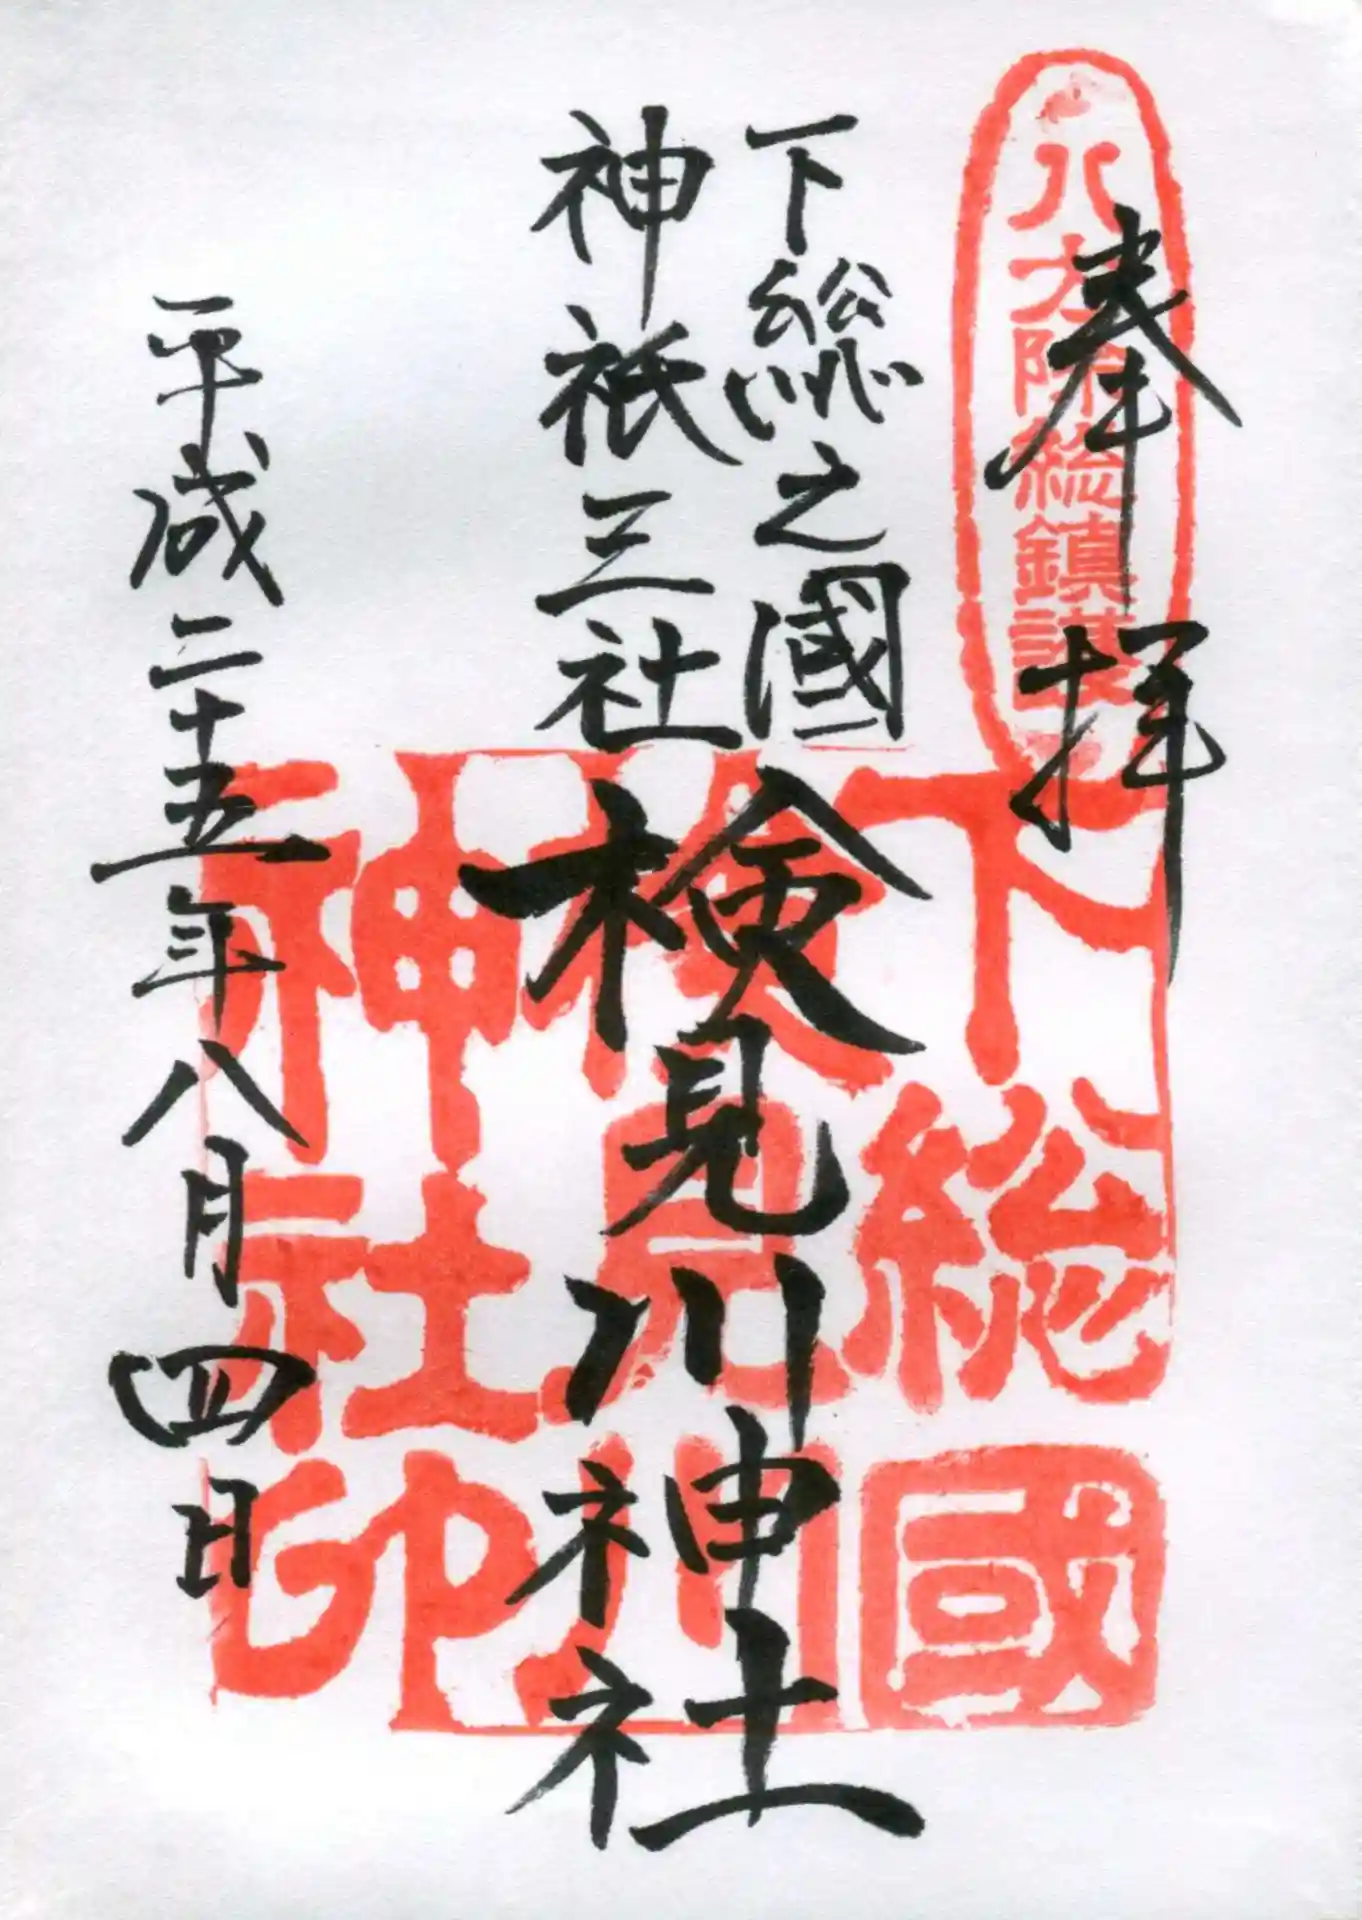 八方除総鎮護
奉拝
下総之國
神祇三社
検見川神社
平成二十五年八月四日
下総國
検見川
神社印